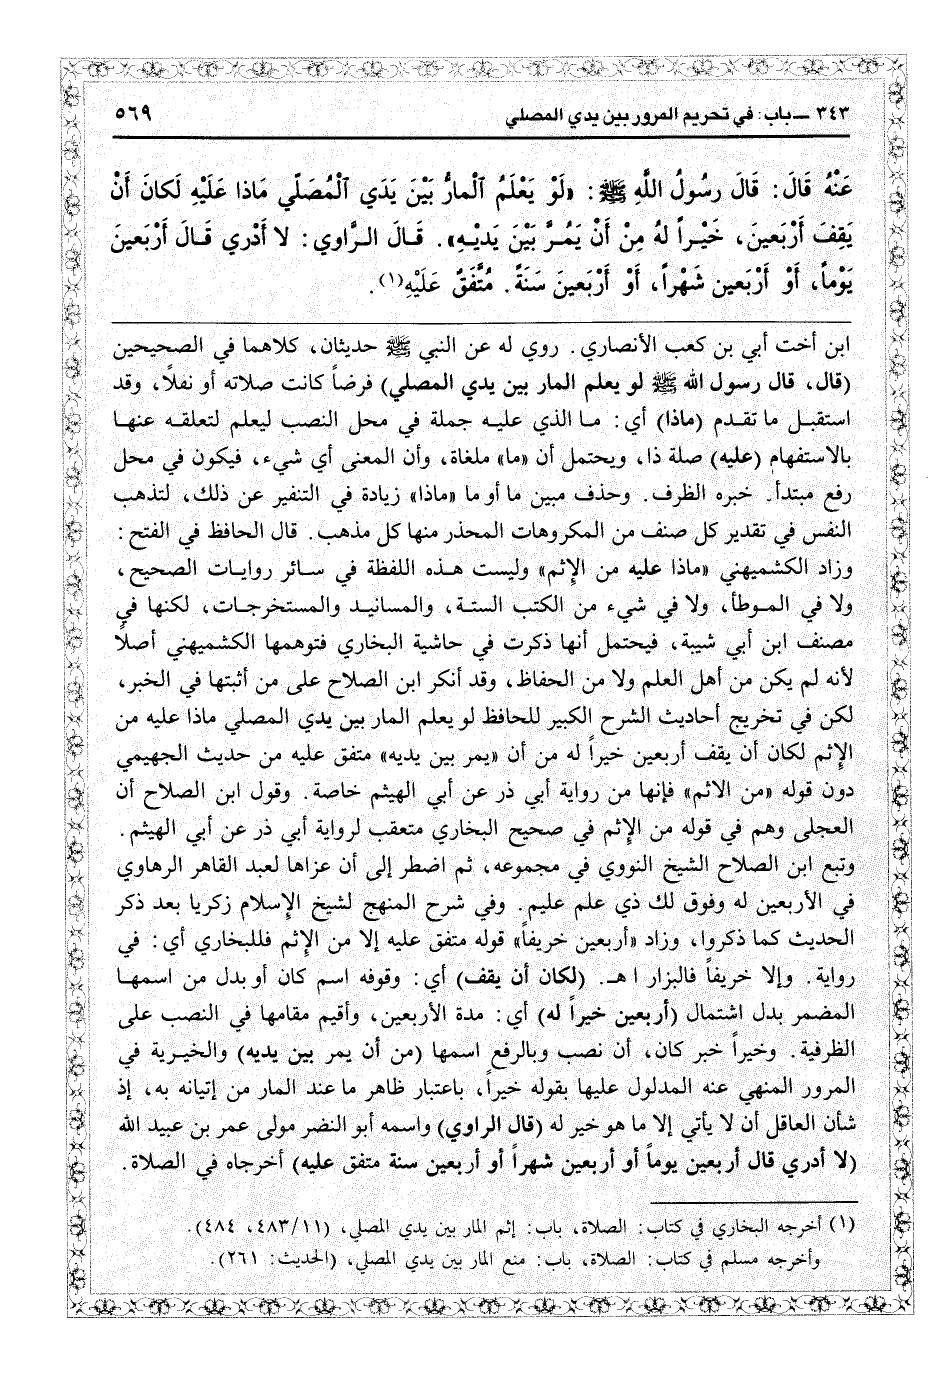 ٣٤٣ ــ باب: في تحريم المرور بين يدي المصلي ٥٦٩
عَنْهُ قَالَ: قَالَ رسُولُ اللَّهِ ﷺ: «لَوْ يَعْلَمُ ٱلْمارُّ بَيْنَ يَدَي ٱلْمُصَلِّي مَاذا عَلَيْهِ لَكانَ أَنْ
يَقِفَ أَرْبَعينَ، خَيْراً لهُ مِنْ أَن يَمُرَّ بَيْنَ يَديْـهِ». قَـالَ الـرَّاوي: لا أَدْري قَـالَ أَرْبَعينَ
يَوْماً، أَوْ أَرْبَعين شَهْراً، أَوْ أَرْبَعينَ سَنَةً. مُتَّفَقٌ عَلَيْهِ(١).
ابن أخت أبي بن كعب الأنصاري. روي له عن النبي ﷺ حديثان، كلاهما في الصحيحين
(قال، قال رسول الله ﷺ لو يعلم المار بين يدي المصلي) فرضاً كانت صلاته أو نفلاً، وقد
استقبـل ما تقـدم (ماذا) أي: مـا الذي عليـه جملة في محل النصب ليعلم لتعلقـه عنهـا
بالاستفهام (عليه) صلة ذا، ويحتمل أن «ما» ملغاة، وأن المعنى أي شيء، فيكون في محل
رفع مبتدأ. خبره الظرف. وحذف مبين ما أو ما «ماذا» زيادة في التنفير عن ذلك، لتذهب
النفس في تقدير كل صنف من المكروهات المحذر منها كل مذهب. قال الحافظ في الفتح:
وزاد الكشميهني «ماذا عليه من الإِثم» وليست هـذه اللفظة في سـائر روايـات الصحيـح،
ولا في المـوطأ، ولا في شيء من الكتب الستـة، والمسانيـد والمستخرجـات، لكنها في
مصنف ابن أبي شيبة، فيحتمل أنها ذكرت في حاشية البخاري فتوهمها الكشميهني أصلاً
لأنه لم يكن من أهل العلم ولا من الحفاظ، وقد أنكر ابن الصلاح على من أثبتها في الخبر،
لكن في تخريج أحاديث الشرح الكبير للحافظ لو يعلم المار بين يدي المصلي ماذا عليه من
الإِثم لكان أن يقف أربعين خيراً له من أن «يمر بين يديه» متفق عليه من حديث الجهيمي
دون قوله «من الاثم» فإنها من رواية أبي ذر عن أبي الهيثم خاصة. وقول ابن الصلاح أن
العجلى وهم في قوله من الإِثم في صحيح البخاري متعقب لرواية أبي ذر عن أبي الهيثم.
وتبع ابن الصلاح الشيخ النووي في مجموعه، ثم اضطر إلى أن عزاها لعبد القاهر الرهاوي
في الأربعين له وفوق لك ذي علم عليم. وفي شرح المنهج لشيخ الإِسلام زكريا بعد ذكر
الحديث كما ذكروا، وزاد «أربعين خريفاً» قوله متفق عليه إلا من الإِثم فللبخاري أي: في
رواية. وإلا خريفاً فالبزار ا هـ. (لكان أن يقف) أي: وقوفه اسم كان أو بدل من اسمهـا
المضمر بدل اشتمال (أربعين خيراً له) أي: مدة الأربعين، وأقيم مقامها في النصب على
الظرفية. وخيراً خبر كان، أن نصب وبالرفع اسمها (من أن يمر بين يديه) والخيـرية في
المرور المنهي عنه المدلول عليها بقوله خيراً، باعتبار ظاهر ما عند المار من إتيانه به، إذ
شأن العاقل أن لا يأتي إلا ما هو خير له (قال الراوي) واسمه أبو النضر مولى عمر بن عبيد الله
(لا أدري قال أربعين يوماً أو أربعين شهراً أو أربعين سنة متفق عليه) أخرجاه في الصلاة.
(١) أخرجه البخاري في كتاب: الصلاة، باب: إثم المار بين يدي المصلي، (٤٨٣/١١، ٤٨٤).
وأخرجه مسلم في كتاب: الصلاة، باب: منع المار بين يدي المصلي، (الحديث: ٢٦١).